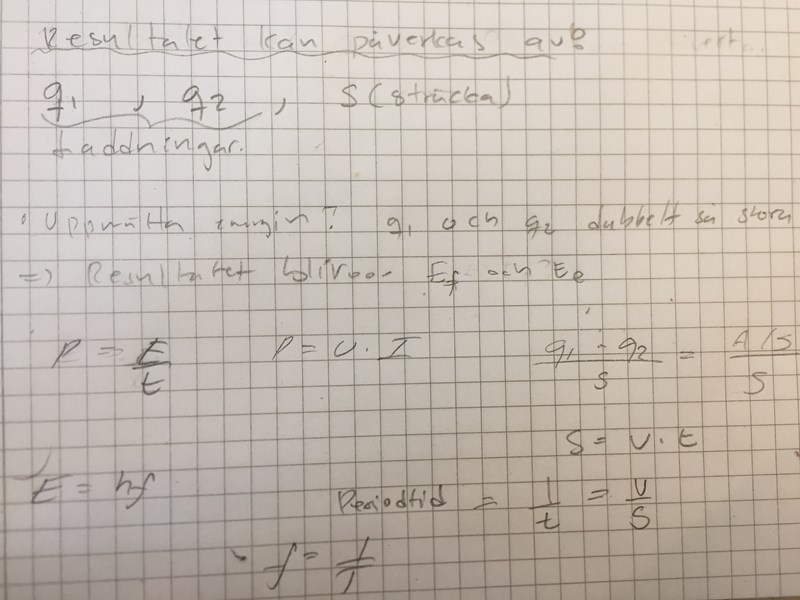 Resultatet kan påverkas av:
q₁ , q₂ , S (sträcka)
Laddningar.
Uppmätta energin? q₁ och q₂ dubbelt så stora
=> Resultatet blir E_f och E_e
P = E/t P = U · I (q₁ · q₂)/s = A/s/S
S = v · t
E = hf
Periodtid = 1/t = v/s
f = 1/T